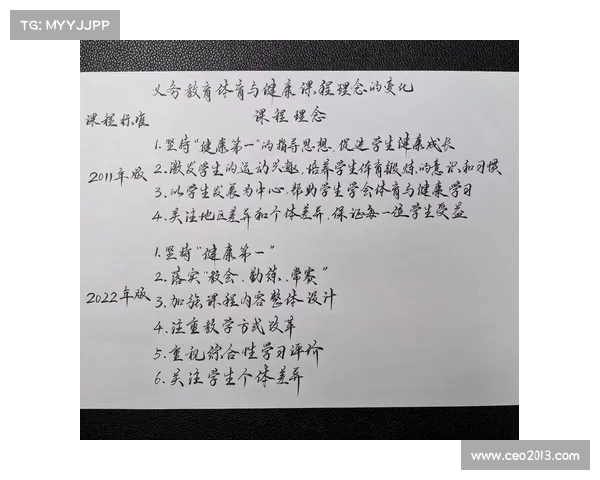 TG: MYYJJPP
义务教育体育与健康课程理念的变化
课程标准
课程理念
2011年版
1.坚持"健康第一"的指导思想,促进学生健康成长
2.激发学生的运动兴趣,培养学生体育锻炼的意识和习惯
3.以学生发展为中心,帮助学生学会体育与健康学习
4.关注地区差异和个体差异,保证每一位学生受益
2022年版
1.坚持"健康第一"
2.落实"教会、勤练、常赛"
3.加强课程内容整体设计
4.注重教学方式改革
5.重视综合性学习评价
6.关注学生个体差异
www.ceo2013.com